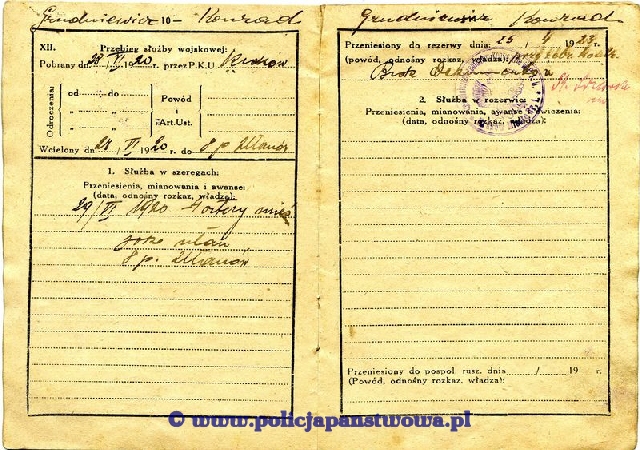 Grudniewicz 10- Konrad
XII. Przebieg służby wojskowej:
Pobrany dn. VI 1920 przez P.K.U. Kraków
Odroczenia:
od do Powód
" " i
" " Art.Ust.
Wcielony dn. 28/VI 1920 do 8 p. Ułanów
1. Służba w szeregach:
Przeniesienia, mianowania i awanse:
(data, odnośny rozkaz, władza):
29/VI 1920
jako ułan
8 p. Ułanów
Grudniewicz Konrad
Przeniesiony do rezerwy dnia: 25/4 1923 r.
(powód, odnośny rozkaz, władza)
Brak
2. Służba w rezerwie
Przeniesienia, mianowania, awanse ćwiczenia:
(data, odnośny rozkaz, władza):
Przeniesiony do pospol. rusz. dnia / 19 r.
(Powód, odnośny rozkaz, władza):
© www.policjapanstwowa.pl